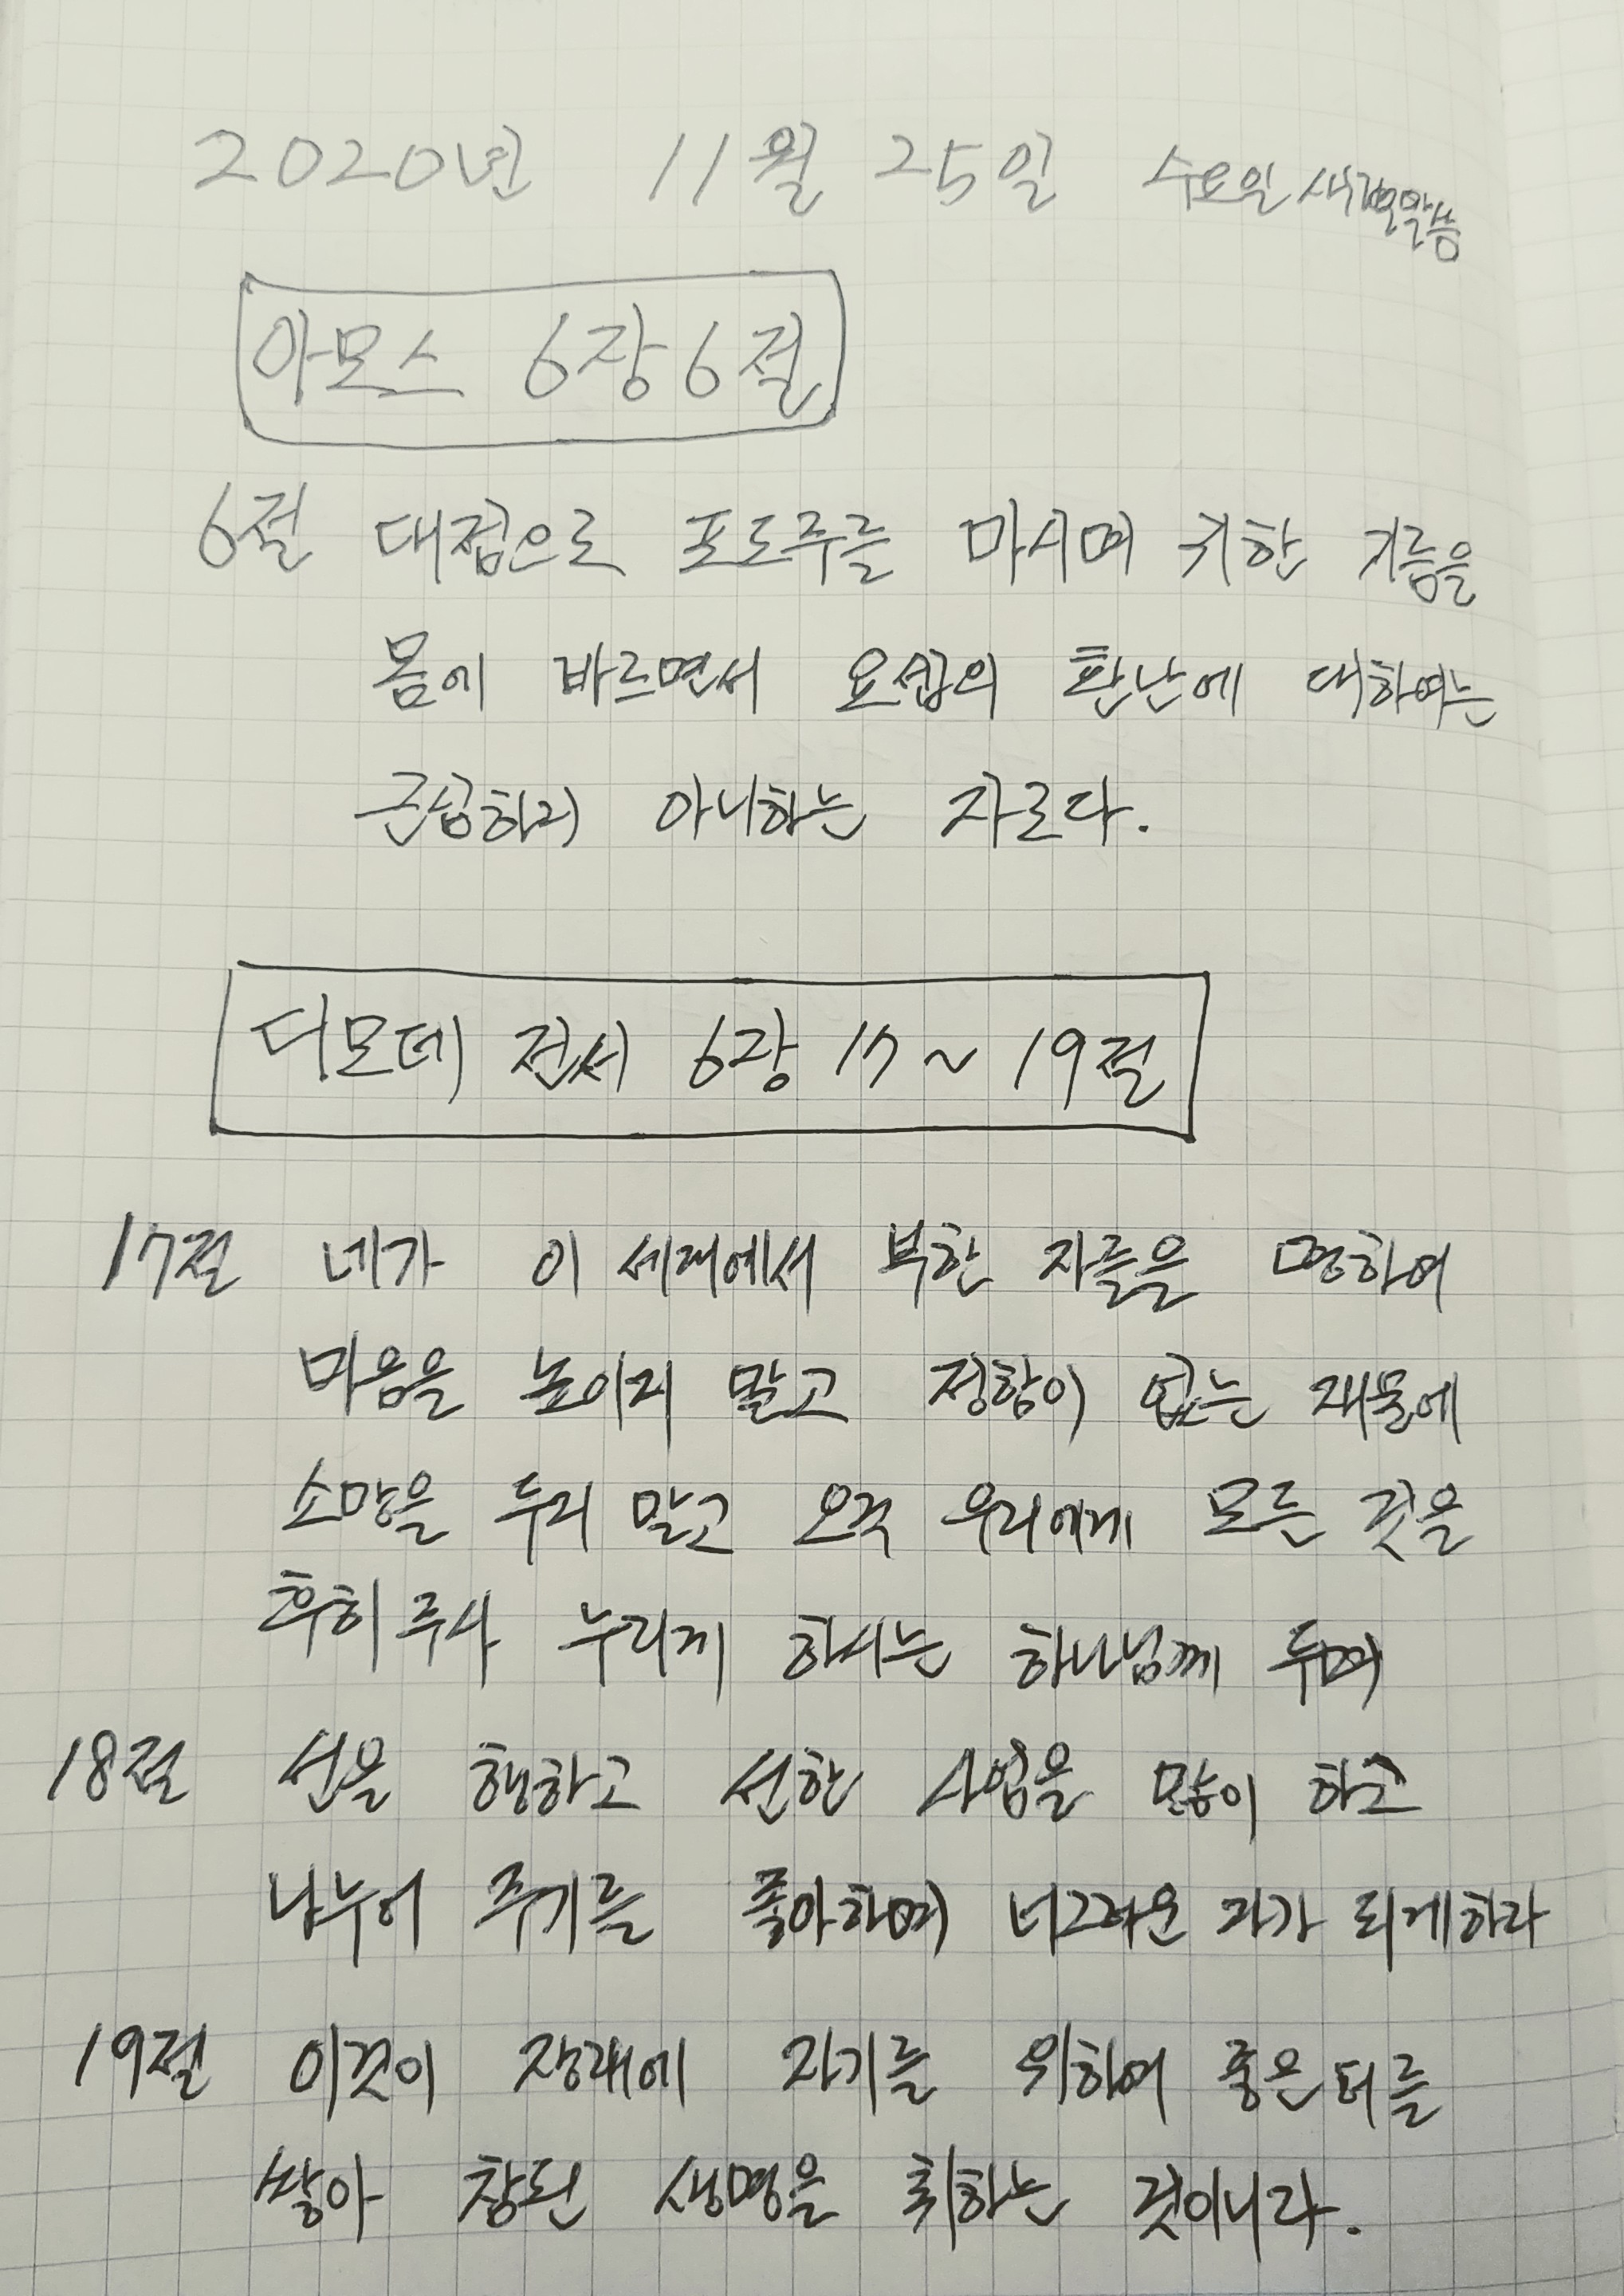 2020년 11월 25일 수요일 새벽말씀
아모스 6장 6절
6절 대접으로 포도주를 마시며 귀한 기름을
몸에 바르면서 요셉의 환난에 대하여는
근심하지 아니하는 자로다.
디모데 전서 6장 17 ~ 19절
17절 네가 이 세대에서 부한 자들을 명하여
마음을 높이지 말고 정함이 없는 재물에
소망을 두지 말고 오직 우리에게 모든 것을
후히 주사 누리게 하시는 하나님께 두며
18절 선을 행하고 선한 사업을 많이 하고
나누어 주기를 좋아하며 너그러운 자가 되게하라
19절 이것이 장래에 자기를 위하여 좋은 터를
쌓아 참된 생명을 취하는 것이니라.